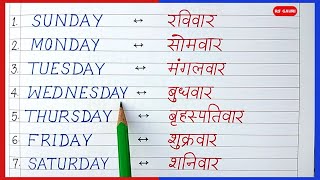 1. SUNDAY ↔ रविवार
2. MONDAY ↔ सोमवार
3. TUESDAY ↔ मंगलवार
4. WEDNESDAY ↔ बुधवार
5. THURSDAY ↔ बृहस्पतिवार
6. FRIDAY ↔ शुक्रवार
7. SATURDAY ↔ शनिवार